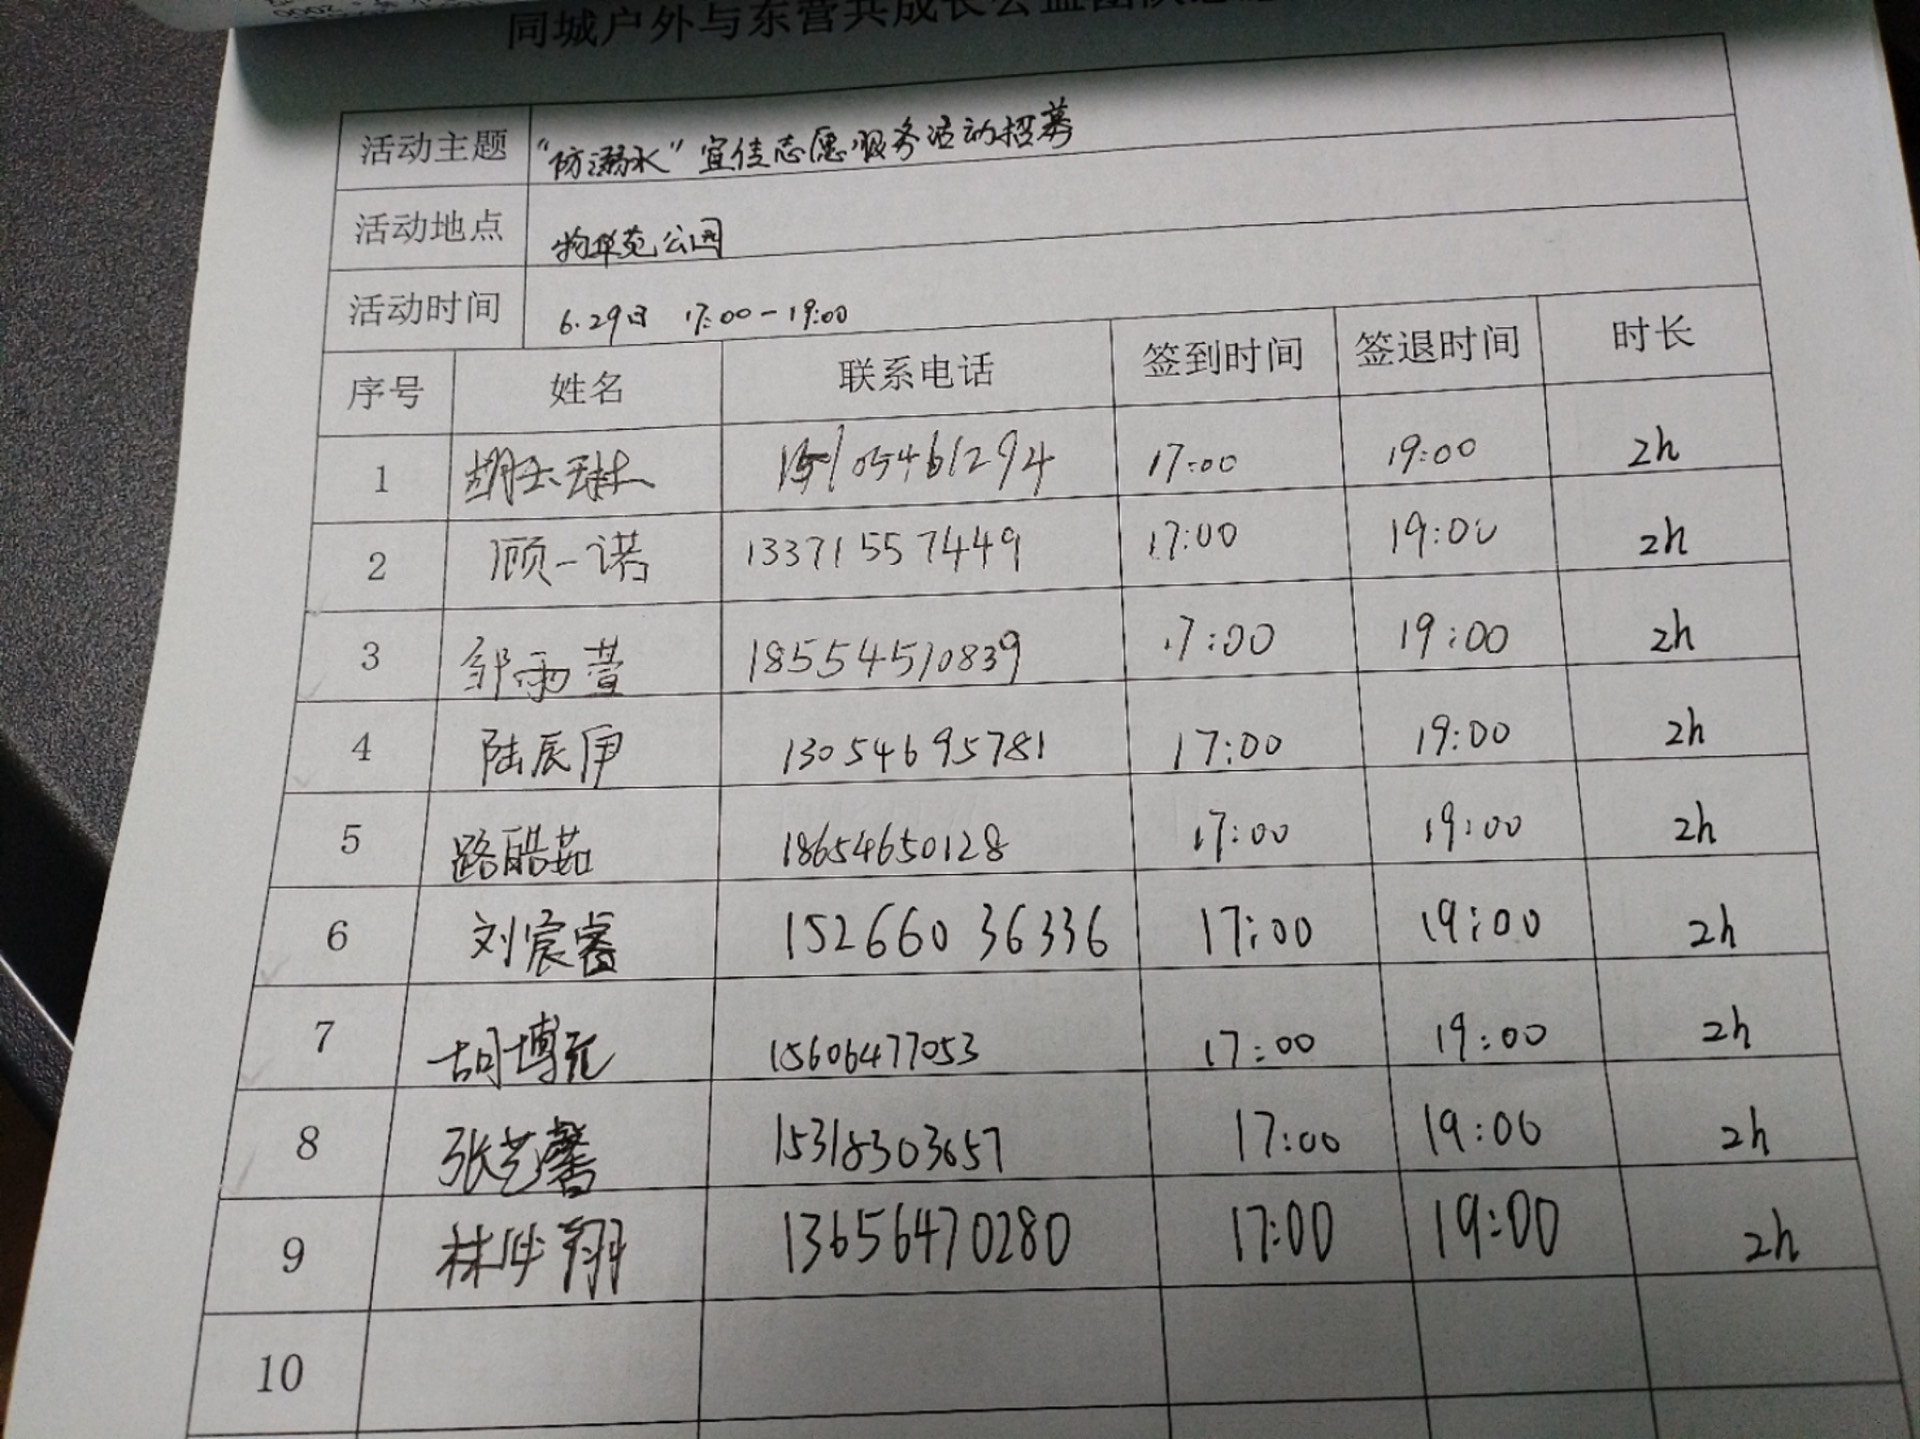 同城户外与东营共成长公益团队志愿
活动主题 “防溺水”宣传志愿服务活动招募
活动地点 公园
活动时间 6.29日 17:00-19:00
序号 姓名 联系电话 签到时间 签退时间 时长
1 17:00 19:00 2h
2 顾一诺 13371557449 17:00 19:00 2h
3 邹雨萱 18554510839 17:00 19:00 2h
4 陆辰伊 13054695781 17:00 19:00 2h
5 路皓茹 18654650128 17:00 19:00 2h
6 刘宸睿 15266036336 17:00 19:00 2h
7 胡博元 15606477053 17:00 19:00 2h
8 张艺馨 15318303657 17:00 19:00 2h
9 13656470280 17:00 19:00 2h
10